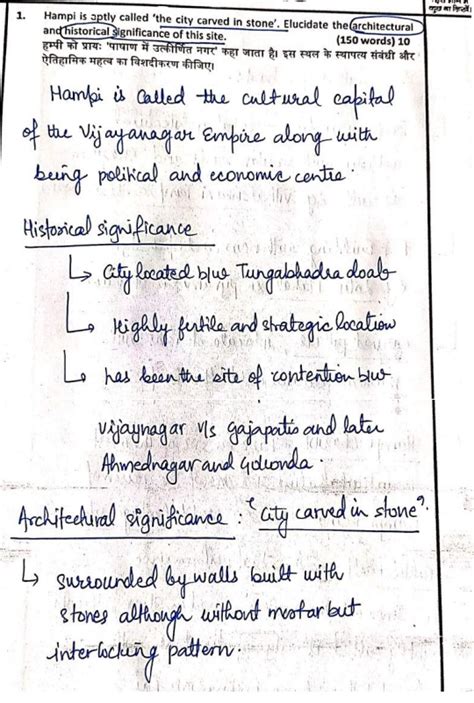 1. Hampi is aptly called 'the city carved in stone'. Elucidate the architectural
and historical significance of this site. (150 words) 10
हम्पी को प्रायः 'पाषाण में उत्कीर्णित नगर' कहा जाता है। इस स्थल के स्थापत्य संबंधी और
ऐतिहासिक महत्व का विशदीकरण कीजिए।
Hampi is called the cultural capital
of the Vijayanagar Empire along with
being political and economic centre.
Historical significance
↳ City located b/w Tungabhadra doab
↳ Highly fertile and strategic location
↳ has been the site of contention b/w
Vijaynagar v/s Gajapatis and later
Ahmednagar and Golconda.
Architectural significance: "City carved in stone".
↳ surrounded by walls built with
stones although without mortar but
interlocking pattern.